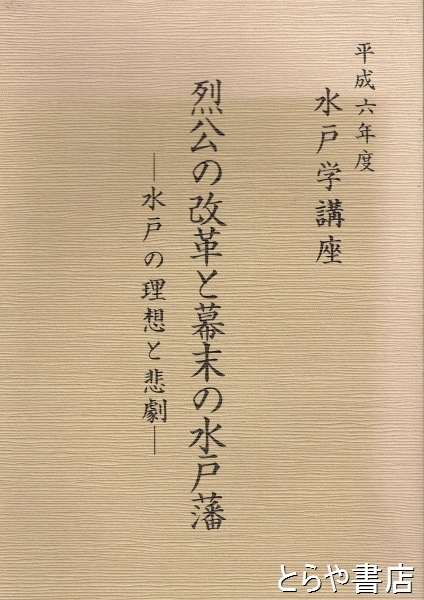 平成六年度
水戸学講座
烈公の改革と幕末の水戸藩
―水戸の理想と悲劇―
とらや書店